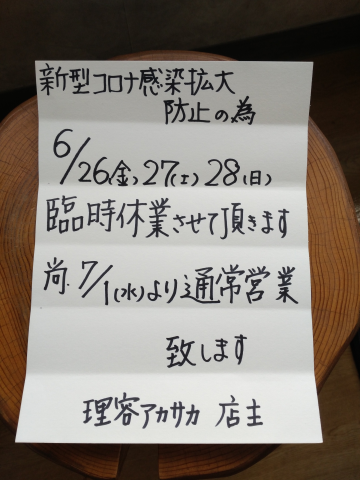 新型コロナ感染拡大
防止の為
6/26(金)27(土)28(日)
臨時休業させて頂きます
尚.7/1(水)より通常営業
致します
理容アカサカ 店主